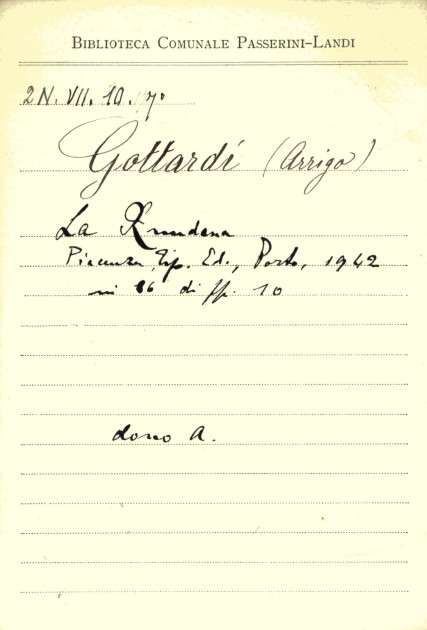 BIBLIOTECA COMUNALE PASSERINI-LANDI
2N. VII. 10. 7°
Gottardi (Arrigo)
La
Piacenza, Tip. Ed., Porta, 1942
in 16 di pp. 10
dono A.